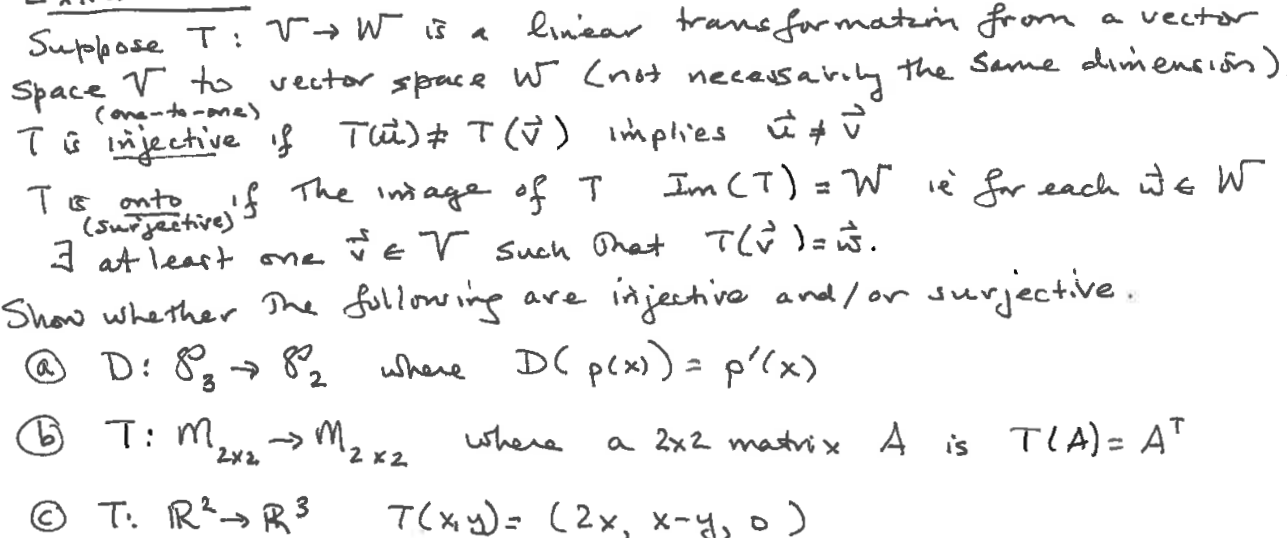 Suppose T: V → W is a linear transformation from a vector
space V to vector space W (not necessarily the same dimension)
(one-to-one)
T is injective if T(u⃗) ≠ T(v⃗) implies u⃗ ≠ v⃗
T is onto if the image of T Im(T) = W ie for each w⃗ ∈ W
(surjective)
∃ at least one v⃗ ∈ V such that T(v⃗) = w⃗.
Show whether the following are injective and/or surjective.
ⓐ D: P₃ → P₂ where D(p(x)) = p'(x)
ⓑ T: M₂ₓ₂ → M₂ₓ₂ where a 2x2 matrix A is T(A) = Aᵀ
ⓒ T: ℝ² → ℝ³ T(x,y) = (2x, x-y, 0)